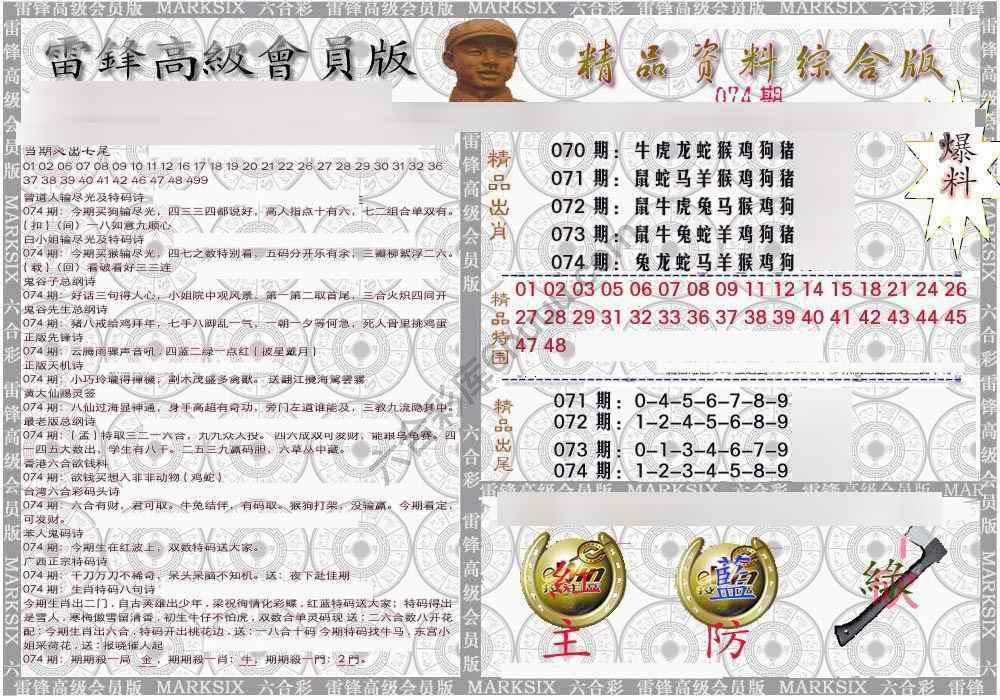 雷锋高级会员版 MARKSIX 六合彩 雷锋高级会员版 MARKSIX 六合彩 雷锋高级会员版
雷鋒高級會員版
精品资料综合版
074期
爆料
当期类出七尾
01 02 06 07 08 09 10 11 12 16 17 18 19 20 21 22 26 27 28 29 30 31 32 36
37 38 39 40 41 42 46 47 48 499
曾道人输尽光及特码诗
074期：今期买狗输尽光，四三三四都说好，高人指点十有六，七二组合单双有。
{扣}（间）一八如意九顺心
白小姐输尽光及特码诗
074期：今期买猴输尽光，四七之数特别看，五码分开乐有余，三瓣柳絮浮二六。
{载}（回）看破看好三三连
鬼谷子总纲诗
074期：好话三句得人心，小姐院中观风景，第一第二取首尾，三合火炽四同开
鬼谷先生总纲诗
074期：猪八戒给鸡拜年，七手八脚乱一气，一朝一夕等何急，死人骨里挑鸡蛋
正版先锋诗
074期：云腾雨骤声音吼，四蓝二绿一点红{披星戴月}
正版天机诗
074期：小巧玲珑得禅機，副木茂盛多禽獸。送翻江攪海駕雲霧
黄大仙赐灵签
074期：八仙过海显神通，身手高超有奇功，旁门左道谁能及，三教九流隐其中。
最老版总纲诗
074期：{孟}特取三二一六合，九九众人投。四六成双可发财，能跟乌龟赛。四
一四五大数出，学生有八千。二五三九赢码胆，六草丛中藏。
香港六合欲钱料
074期：欲钱买想入非非动物{鸡蛇}
台湾六合彩码头诗
074期：六合有财，君可取。牛兔结伴，有码取。猴狗打架，没输赢。今期看定，
可发财。
苯人鬼码诗
074期：今期生在红波上，双数特码送大家。
广西正宗特码诗
074期：千刀万刀不稀奇，呆头呆脑不知机。送：夜下赴佳期
074期：生肖特码八句诗
今期生肖出二门，自古英雄出少年，梁祝徇情化彩蝶，红蓝特码送大家；特码得出
是雪人，寒梅傲雪留清香，初生牛仔不怕虎，双数合单灵码现 送：二六合数八开花
配：今期生肖出六合，特码开出桃花边，送：一八合十码 今期特码找牛马，东宫小
姐采荷花，送：报晓催人起
074期：期期殺一局 金，期期殺一肖：牛，期期殺一門：2門。
精品出肖
070 期：牛虎龙蛇猴鸡狗猪
071 期：鼠蛇马羊猴鸡狗猪
072 期：鼠牛虎兔马猴鸡狗
073 期：鼠牛兔蛇羊鸡狗猪
074 期：兔龙蛇马羊猴鸡狗
精品特围
01 02 03 05 06 07 08 09 11 12 14 15 18 21 24 26
27 28 29 31 32 33 36 37 38 39 40 41 42 43 44 45
47 48
精品出尾
071 期：0-4-5-6-7-8-9
072 期：1-2-4-5-6-8-9
073 期：0-1-3-4-6-7-9
074 期：1-2-3-4-5-8-9
雷锋高级会员版 MARKSIX 六合彩 雷锋高级会员版
紅
藍
綠
主
防
雷锋高级会员版 MARKSIX 六合彩 雷锋高级会员版 MARKSIX 六合彩 雷锋高级会员版